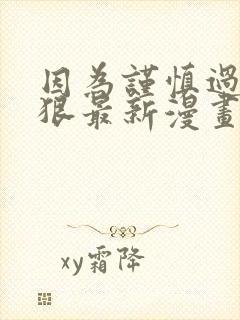 因為謹慎過
狠最新漫畫
xy霜降